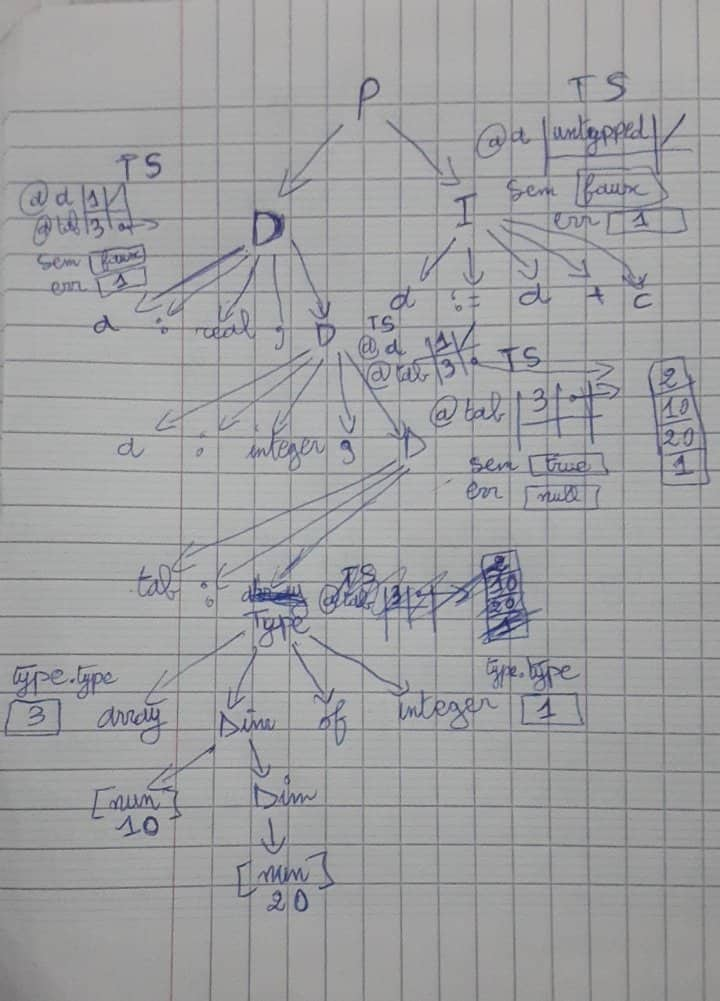 P
TS
@d | untypped |
Sem faux
err 1
TS
@d | 1 |
@tab | 3 |
Sem faux
err 1
D
I
d := d + c
d : real ; D
TS
@d | 1 |
@tab | 3 |
TS
@tab | 3 |
2
10
20
1
d : integer ; D
Sem true
err null
tab : Type
type.type
3
array Dim of integer
type.type
1
[num]
10
Dim
[num]
20